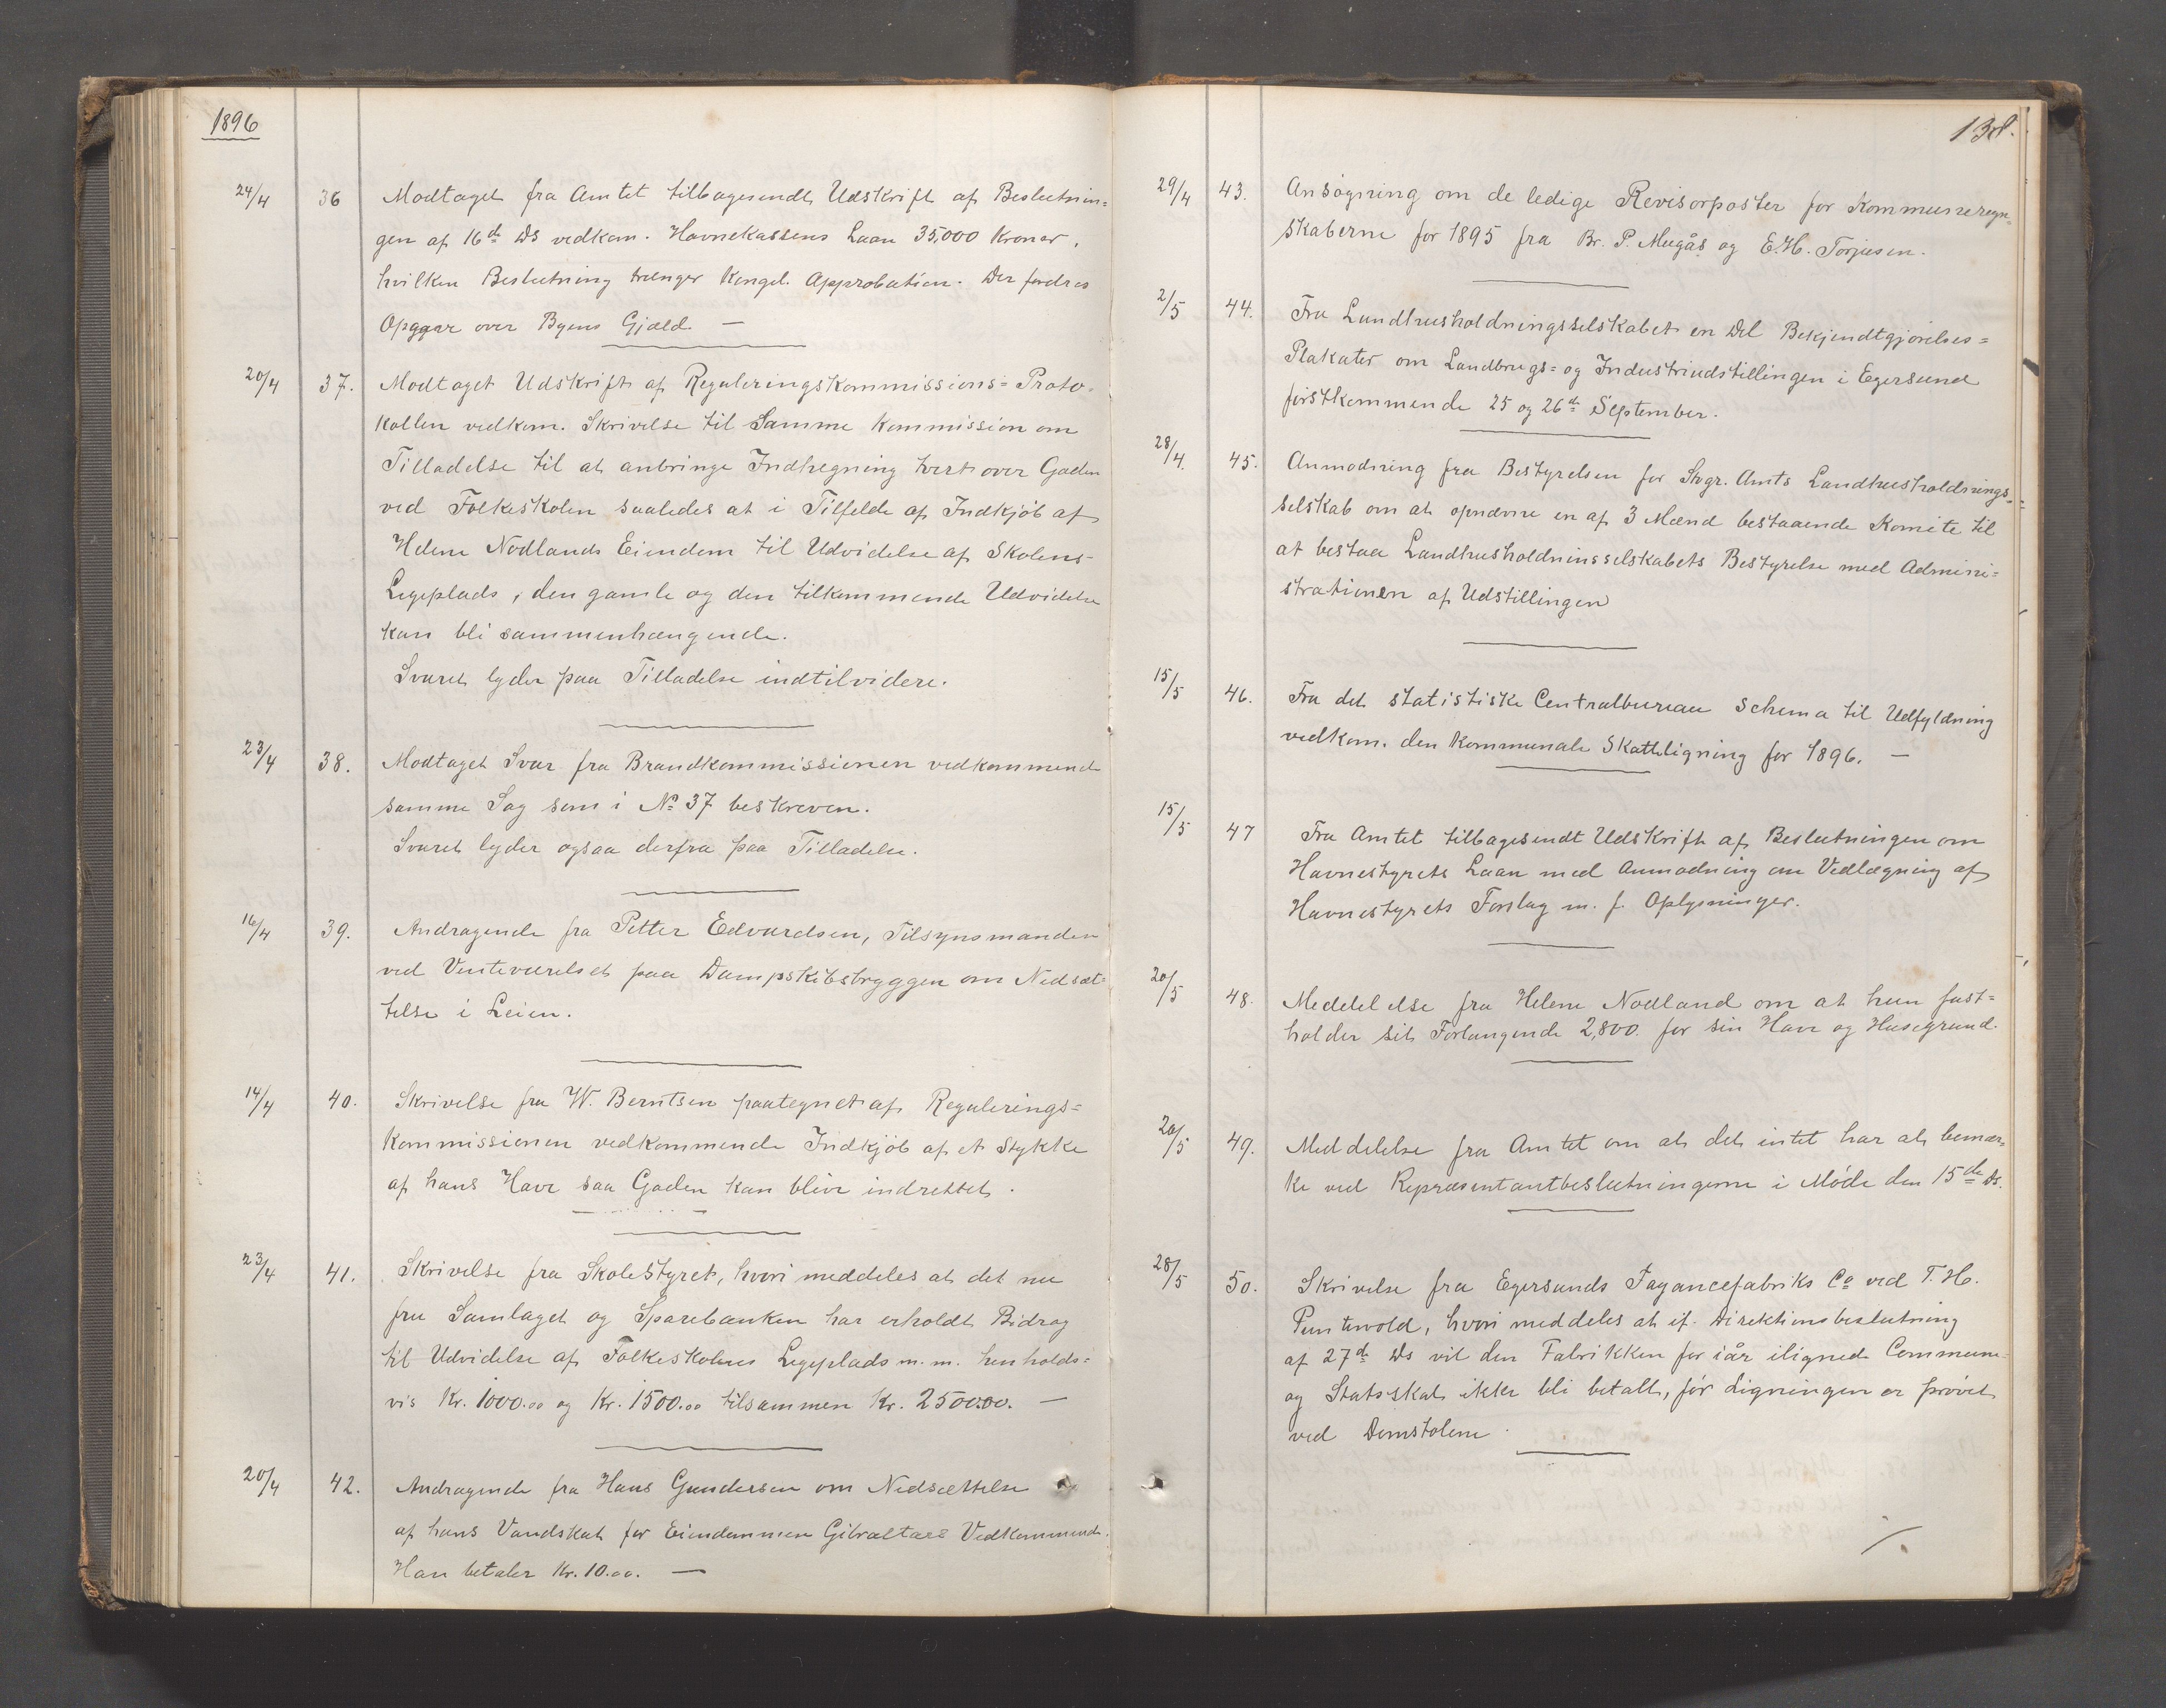 1896
24/4 36 Modtaget fra Amtet tilbagesendt Udskrift af Beslutnin=
gen af 16de ds vedkom. Havnekassens Laan 35,000 Kroner,
hvilken Beslutning trænger Kongel. Approbation. Der fordres
Opgjør over Byens Gjæld. —
20/4 37. Modtaget Udskrift af Reguleringskommissions=Proto-
kollen vedkom. Skrivelse til Samme Kommission om
Tilladelse til at anbringe Indhegning tvert over Gaden
ved Folkeskolen saaledes at i Tilfelde af Indkjöb af
Helene Nodlands Eiendom til Udvidelse af Skolens
Legeplads, den gamle og den tilkommende Udvidelse
kan bli sammenhængende.
Svaret lyder paa Tilladelse indtilvidere.
23/4 38. Modtaget Svar fra Brandkommissionen vedkommende
samme Sag som i No 37 beskreven.
Svaret lyder ogsaa derfra paa Tilladelse.
16/4 39. Andragende fra Petter Edvardsen, Tilsynsmanden
ved Venteværelset paa Dampskibsbryggen om Nedsæt=
telse i Leien.
14/4 40. Skrivelse fra W. Berntsen paategnet af Regulerings=
kommissionen vedkommende Indkjöb af et Stykke
af hans Have saa Gaden kan blive indrettet.
23/4 41. Skrivelse fra Skolestyret, hvori meddeles at det nu
fra Samlaget og Sparebanken har erholdt Bidrag
til Udvidelse af Folkeskolens Legeplads m.m. henholds=
vis Kr. 1000.00 og Kr. 1500.00 tilsammen Kr. 2500.00. —
20/4 42. Andragende fra Hans Gundersen om Nedsættelse
af hans Vandskat for Eiendommen Gibraltars Vedkommende.
Han betaler Kr. 10.00. —
138.
29/4 43. Ansögning om de ledige Revisorposter for Kommuneregn-
skaberne for 1895 fra Br. P. Mugås og E.H. Torjusen.
2/5 44. Fra Landhusholdningsselskabet en Del Bekjendtgjörelses=
Plakater om Landbrugs= og Industriudstillingen i Egersund
förstkommende 25 og 26de September.
28/4. 45. Anmodning fra Bestyrelsen for Stvgr. Amts Landhusholdnings=
selskab om at opnævne en af 3 Mænd bestaaende Komite til
at bestaa Landhusholdninsselskabets Bestyrelse med Admini=
strationen af Udstillingen
15/5 46. Fra det statistiske Centralbureau Schema til Udfyldning
vedkom. den kommunale Skatteligning for 1896. —
15/5 47 Fra Amtet tilbagesendt Udskrift af Beslutningen om
Havnestyrets Laan med Anmodning om Vedlægning af
Havnestyrets Forslag m. f. Oplysninger.
20/5 48. Meddelelse fra Helene Nodland om at hun fast=
holder sit Forlangende 2,800. for sin Have og Husegrund.
20/5 49. Meddelelse fra Amtet om at det intet har at bemær-
ke ved Repræsentantbeslutningerne i Möde den 15de ds.
28/5 50. Skrivelse fra Egersunds Fayancefabriks Co ved T.H.
Puntervold, hvori meddeles at if. Direktionsbeslutning
af 27de ds vil den Fabrikken for iår ilignede Commune-
og Statsskat ikke bli betalt, för Ligningen er prövet
ved Domstolene.